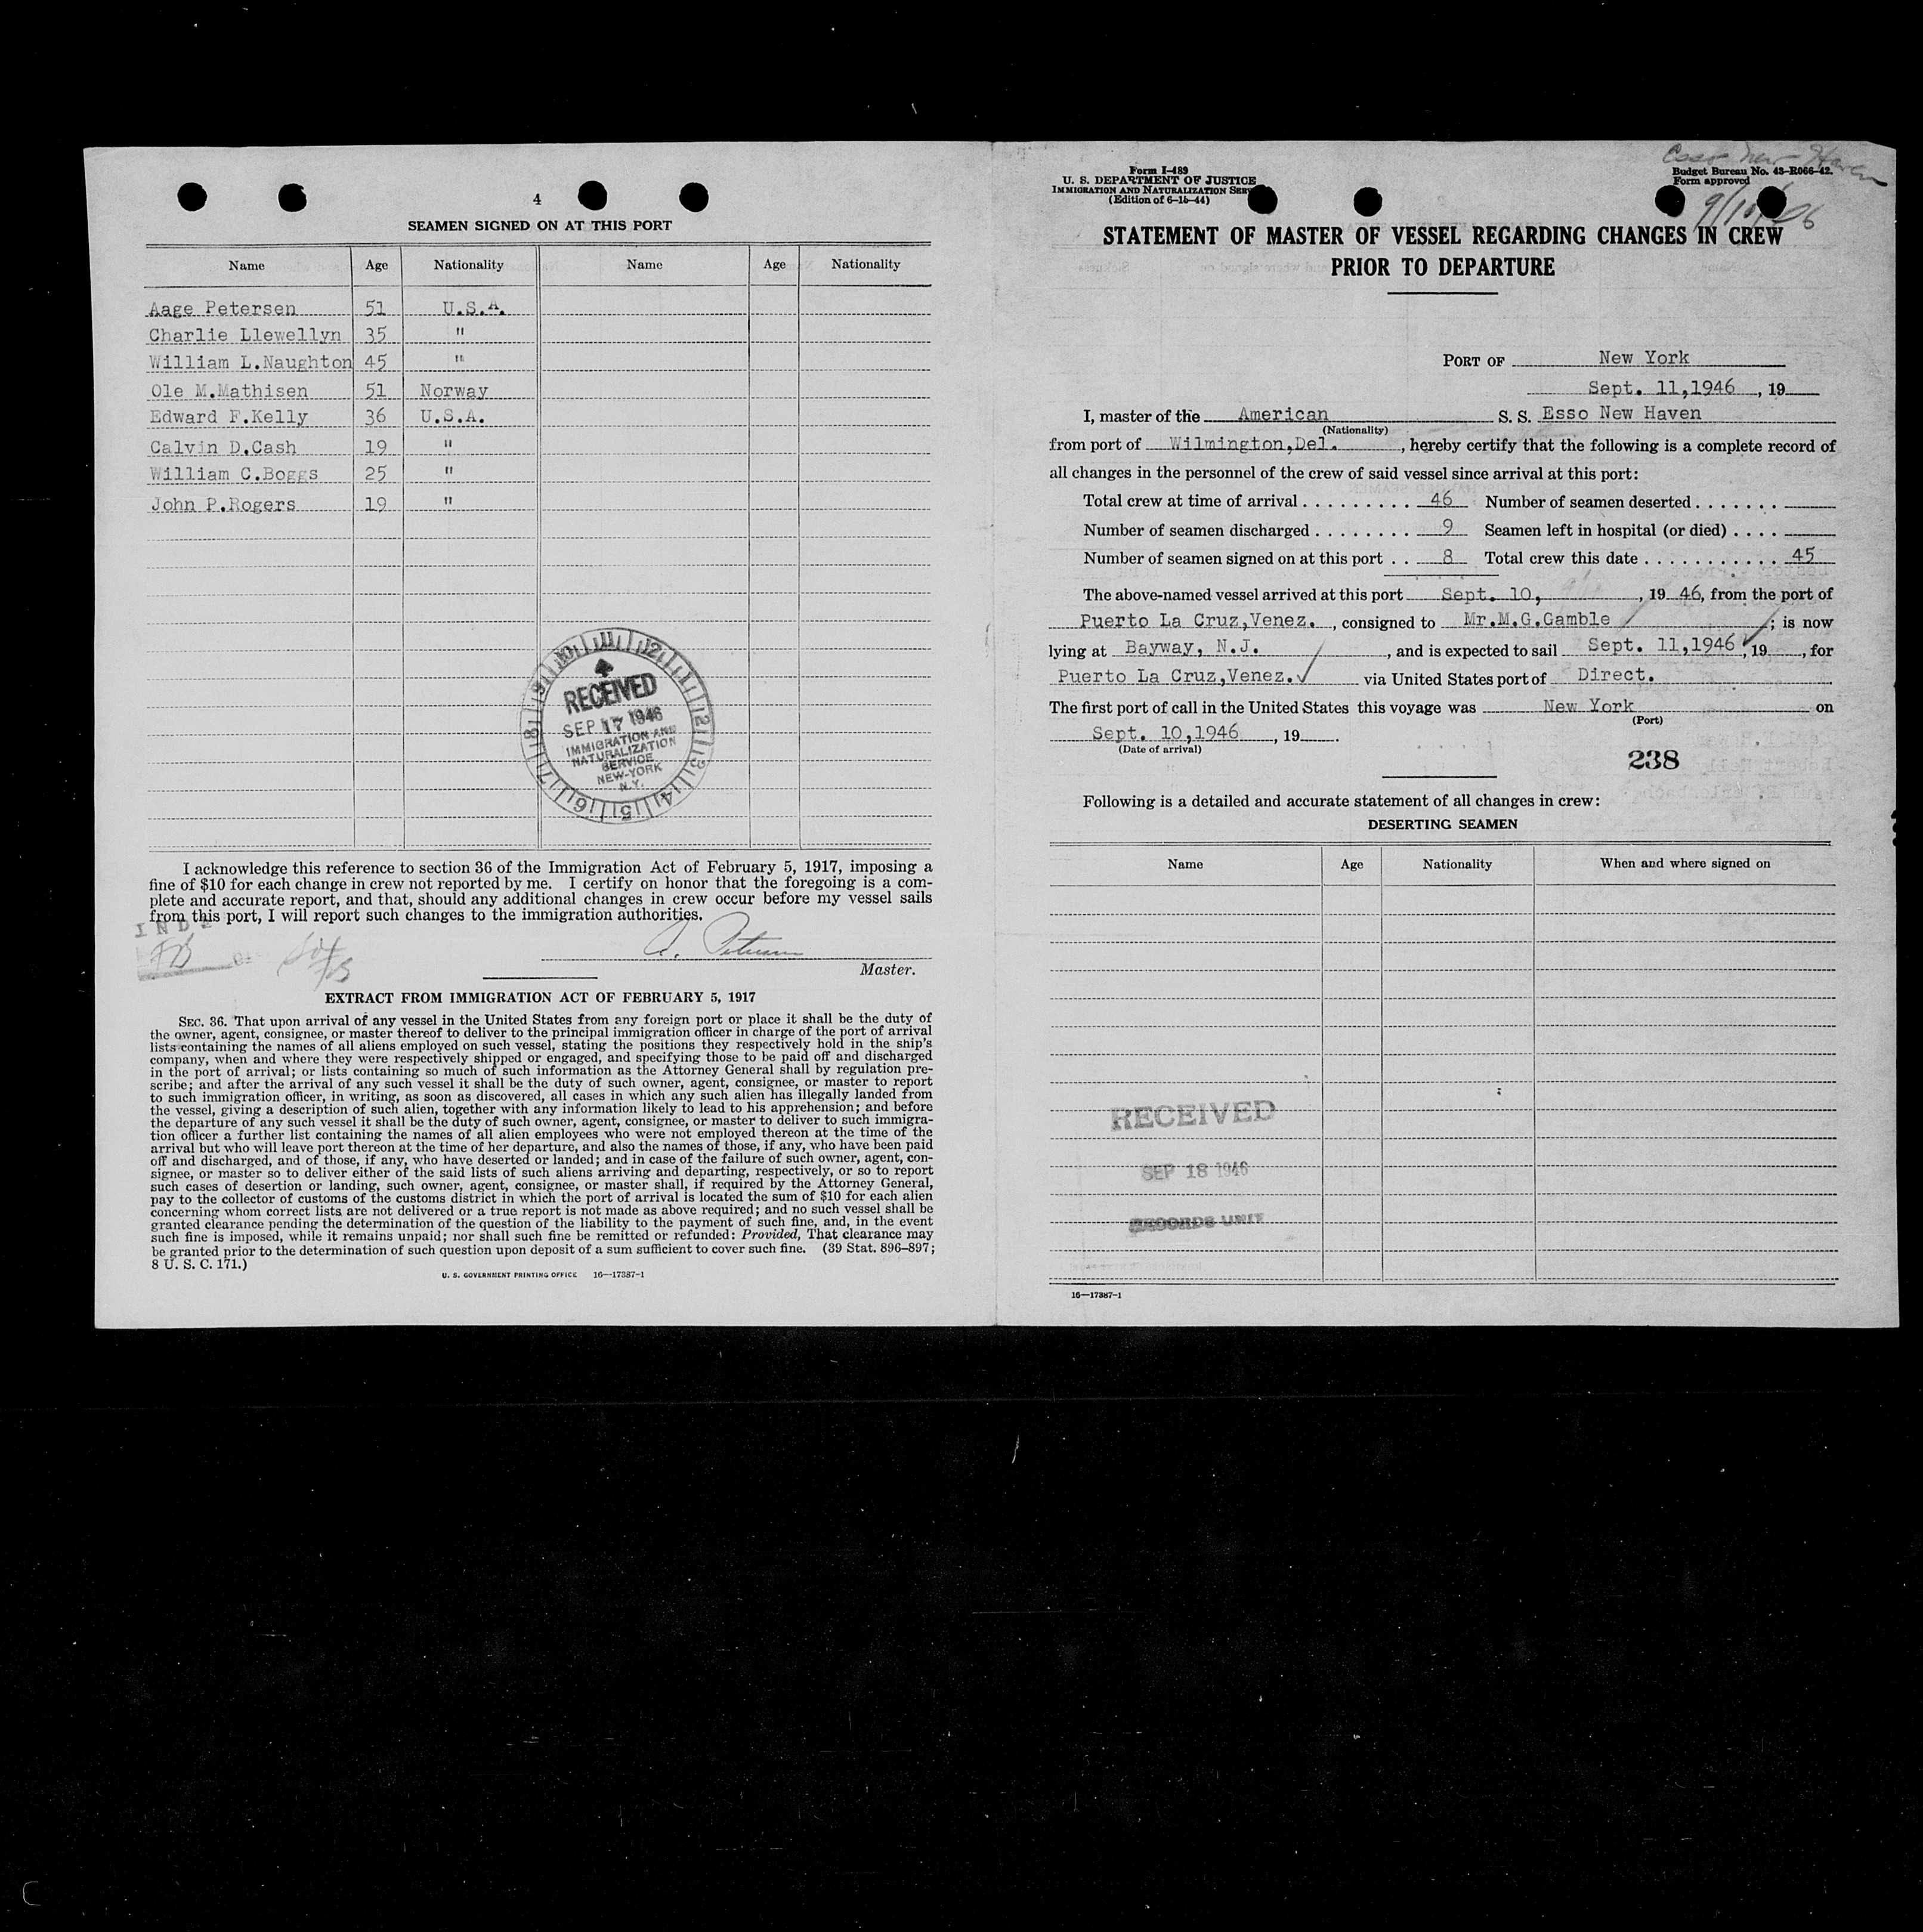 4
SEAMEN SIGNED ON AT THIS PORT
Name Age Nationality Name Age Nationality
Aage Petersen 51 U.S.A.
Charlie Llewellyn 35 "
William L.Naughton 45 "
Ole M.Mathisen 51 Norway
Edward F.Kelly 36 U.S.A.
Calvin D.Cash 19 "
William C.Boggs 25 "
John P.Rogers 19 "
RECEIVED
SEP 17 1946
IMMIGRATION AND
NATURALIZATION
SERVICE
NEW-YORK
N.Y.
I acknowledge this reference to section 36 of the Immigration Act of February 5, 1917, imposing a
fine of $10 for each change in crew not reported by me. I certify on honor that the foregoing is a com-
plete and accurate report, and that, should any additional changes in crew occur before my vessel sails
from this port, I will report such changes to the immigration authorities.
A. Petersen
Master.
EXTRACT FROM IMMIGRATION ACT OF FEBRUARY 5, 1917
SEC. 36. That upon arrival of any vessel in the United States from any foreign port or place it shall be the duty of
the owner, agent, consignee, or master thereof to deliver to the principal immigration officer in charge of the port of arrival
lists containing the names of all aliens employed on such vessel, stating the positions they respectively hold in the ship's
company, when and where they were respectively shipped or engaged, and specifying those to be paid off and discharged
in the port of arrival; or lists containing so much of such information as the Attorney General shall by regulation pre-
scribe; and after the arrival of any such vessel it shall be the duty of such owner, agent, consignee, or master to report
to such immigration officer, in writing, as soon as discovered, all cases in which any such alien has illegally landed from
the vessel, giving a description of such alien, together with any information likely to lead to his apprehension; and before
the departure of any such vessel it shall be the duty of such owner, agent, consignee, or master to deliver to such immigra-
tion officer a further list containing the names of all alien employees who were not employed thereon at the time of the
arrival but who will leave port thereon at the time of her departure, and also the names of those, if any, who have been paid
off and discharged, and of those, if any, who have deserted or landed; and in case of the failure of such owner, agent, con-
signee, or master so to deliver either of the said lists of such aliens arriving and departing, respectively, or so to report
such cases of desertion or landing, such owner, agent, consignee, or master shall, if required by the Attorney General,
pay to the collector of customs of the customs district in which the port of arrival is located the sum of $10 for each alien
concerning whom correct lists are not delivered or a true report is not made as above required; and no such vessel shall be
granted clearance pending the determination of the question of the liability to the payment of such fine, and, in the event
such fine is imposed, while it remains unpaid; nor shall such fine be remitted or refunded: Provided, That clearance may
be granted prior to the determination of such question upon deposit of a sum sufficient to cover such fine. (39 Stat. 896–897;
8 U. S. C. 171.)
U. S. GOVERNMENT PRINTING OFFICE 16—17387-1
Esso New Haven
Form I-489
U. S. DEPARTMENT OF JUSTICE
IMMIGRATION AND NATURALIZATION
(Edition of 6-15-44)
Budget Bureau No. 43-R066-42.
Form approved
STATEMENT OF MASTER OF VESSEL REGARDING CHANGES IN CREW
PRIOR TO DEPARTURE
PORT OF New York
Sept. 11,1946, 19
I, master of the American S. S. Esso New Haven
(Nationality)
from port of Wilmington,Del., hereby certify that the following is a complete record of
all changes in the personnel of the crew of said vessel since arrival at this port:
Total crew at time of arrival . . . . . . . . . 46 Number of seamen deserted . . . . . . .
Number of seamen discharged . . . . . . . . 9 Seamen left in hospital (or died) . . . .
Number of seamen signed on at this port . . 8 Total crew this date . . . . . . . . . . . 45
The above-named vessel arrived at this port Sept. 10, , 19 46, from the port of
Puerto La Cruz,Venez. , consigned to Mr.M.G.Gamble ; is now
lying at Bayway, N.J. , and is expected to sail Sept. 11,1946, 19 , for
Puerto La Cruz,Venez. via United States port of Direct.
The first port of call in the United States this voyage was New York on
(Port)
Sept. 10,1946 , 19 .
(Date of arrival)
238
Following is a detailed and accurate statement of all changes in crew:
DESERTING SEAMEN
Name Age Nationality When and where signed on
RECEIVED
SEP 18 1946
RECORDS UNIT
16—17387-1